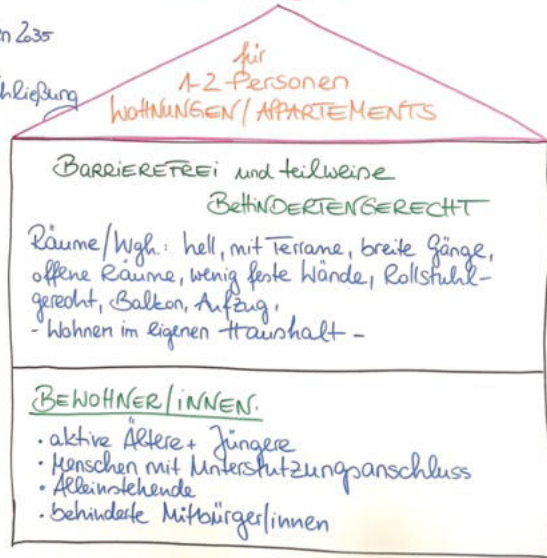 n 2035
für
1-2-Personen
hließung
WOHNUNGEN/APPARTEMENTS
BARRIEREFREI und teilweise
BEHINDERTENGERECHT
Räume/Wgh.: hell, mit Terrasse, breite Gänge,
offene Räume, wenig feste Wände, Rollstuhl-
gerecht, Balkon, Aufzug,
- Wohnen im eigenen Haushalt -
BEWOHNER/INNEN.
• aktive Ältere + Jüngere
• Menschen mit Unterstützungsanschluss
• Alleinstehende
• behinderte Mitbürger/innen